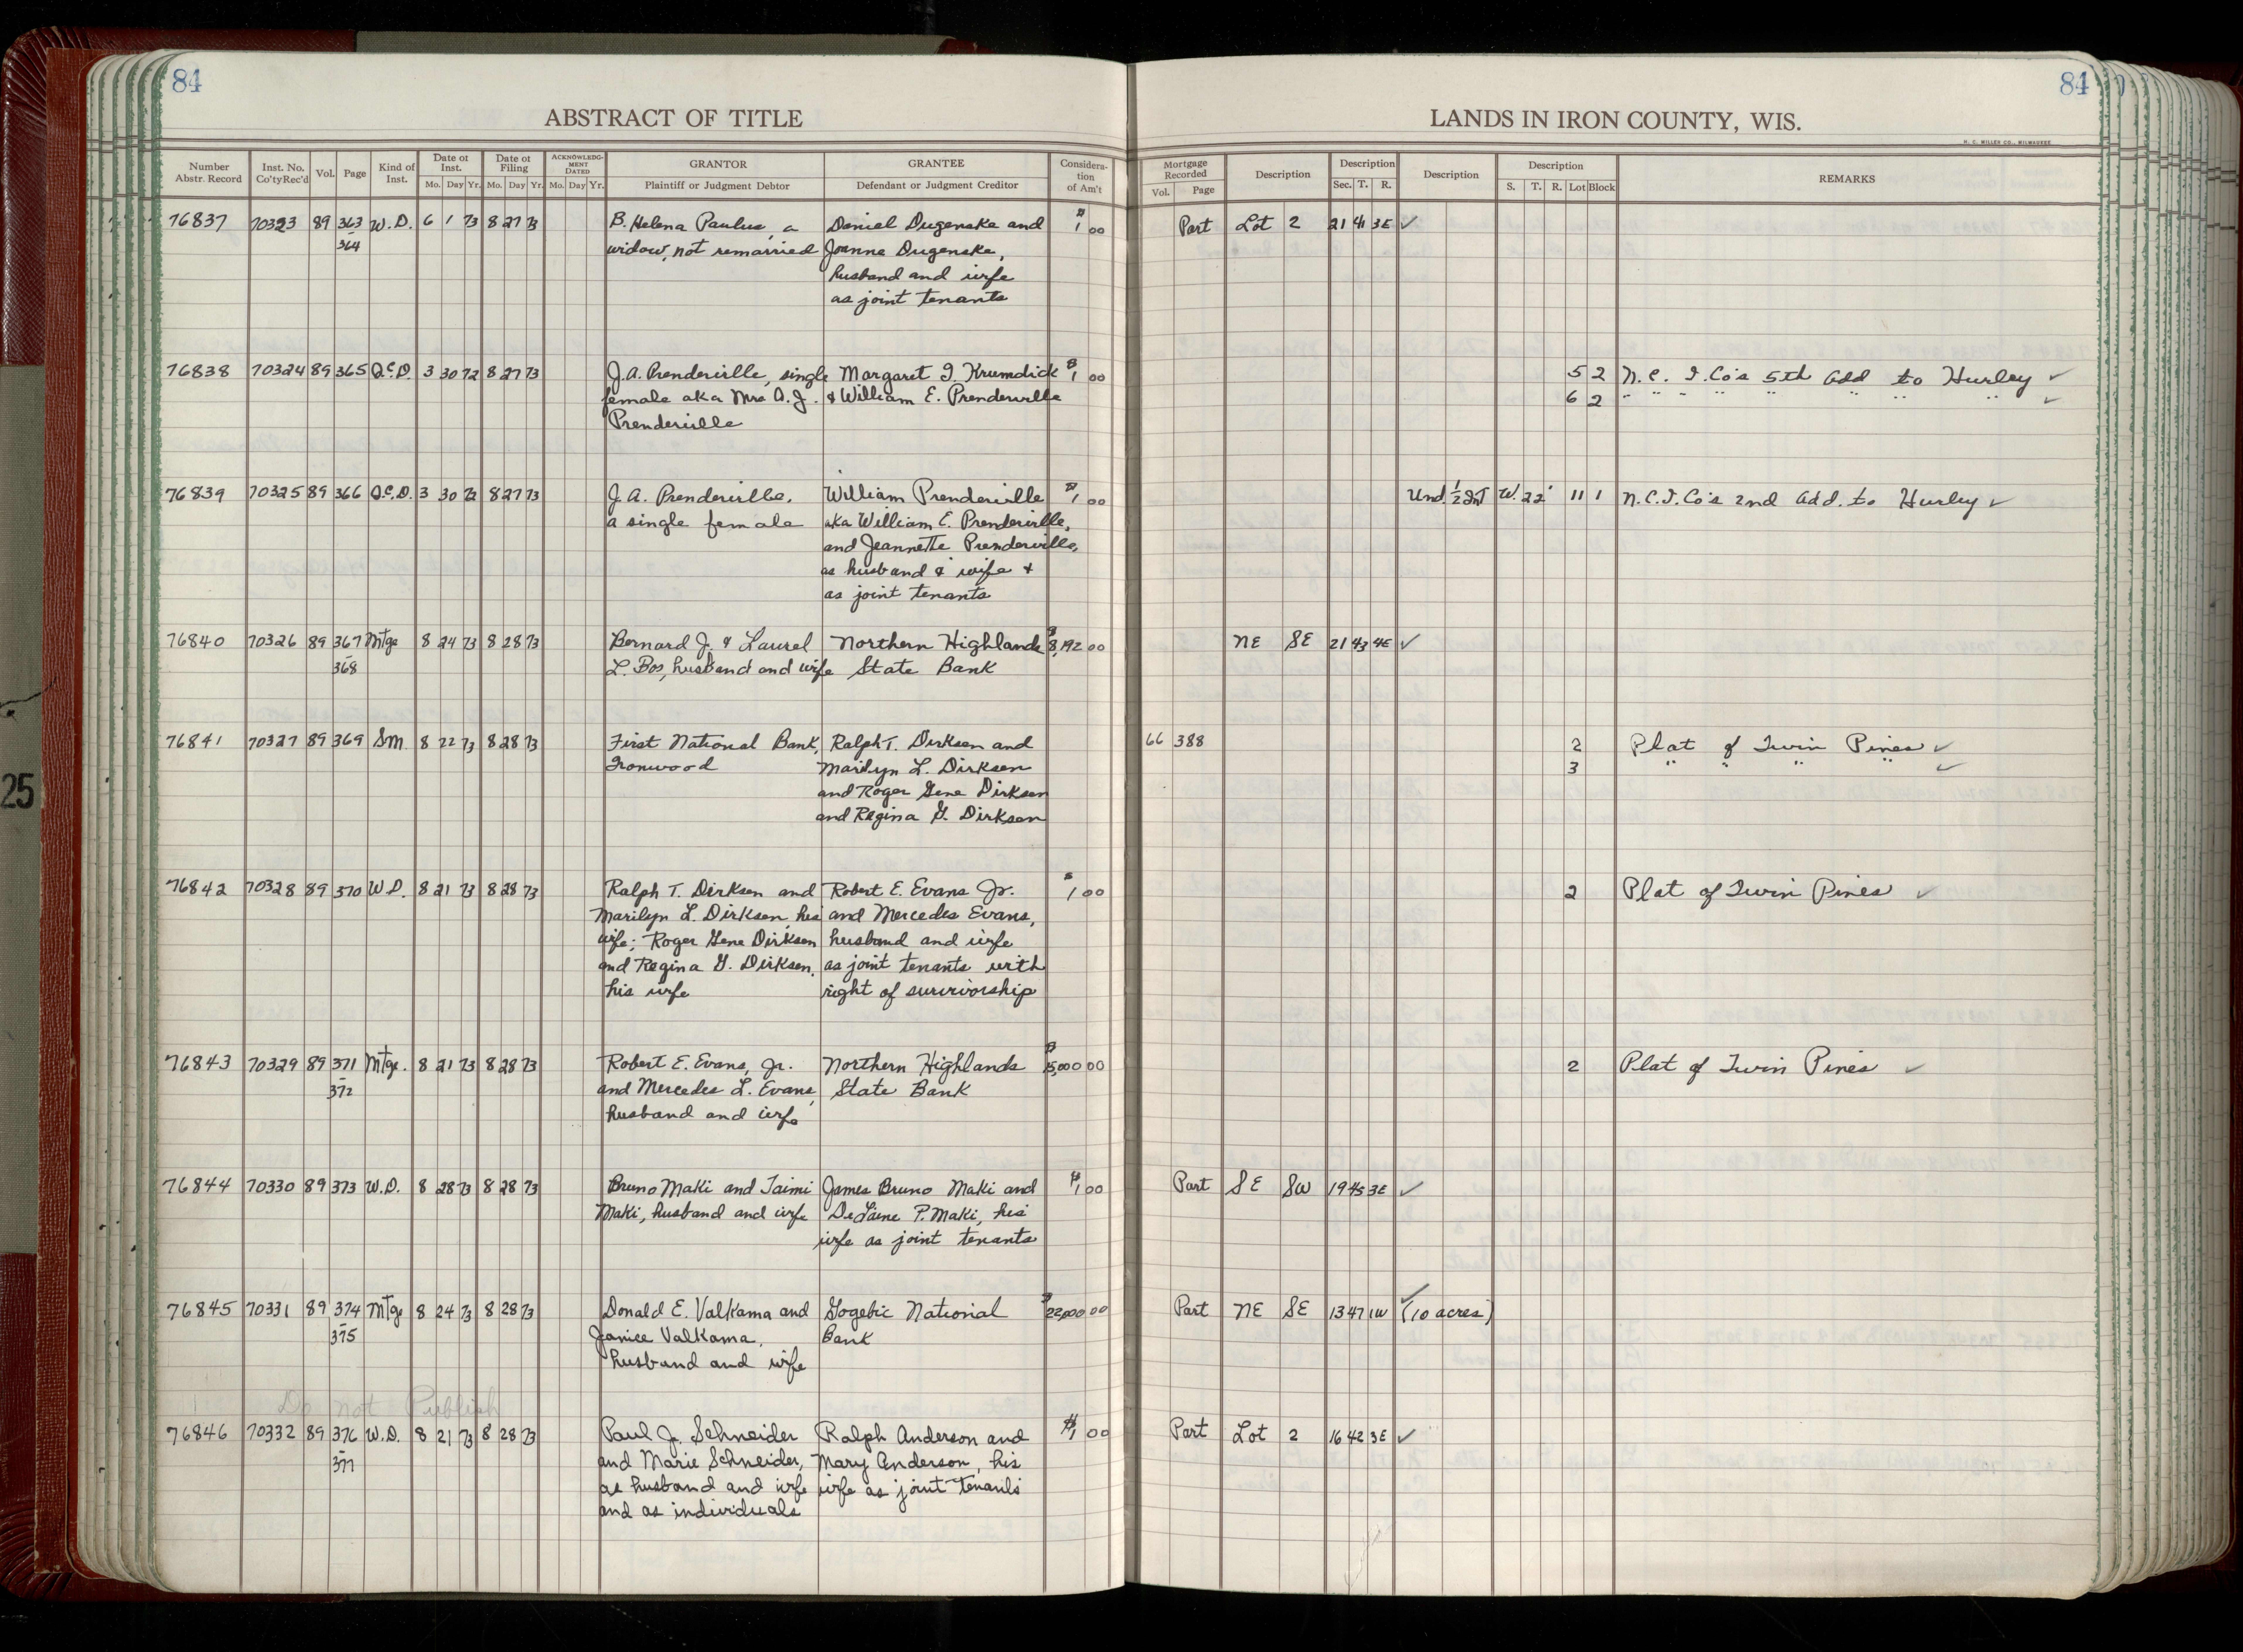 84
84
ABSTRACT OF TITLE
LANDS IN IRON COUNTY, WIS.
H. C. MILLER CO., MILWAUKEE
Number Abstr. Record Inst. No. Co'ty Rec'd Vol. Page Kind of Inst. Date of Inst. Mo. Day Yr. Date of Filing Mo. Day Yr. ACKNOWLEDGMENT DATED Mo. Day Yr. GRANTOR Plaintiff or Judgment Debtor GRANTEE Defendant or Judgment Creditor Consideration of Am't Mortgage Recorded Vol. Page Description Description Sec. T. R. Description Description S. T. R. Lot Block REMARKS
76837 70323 89 363 W.D. 6 1 73 8 27 73 B. Helena Paulus, a Daniel Dugenske and $1 00 Part Lot 2 21 41 3E ✓
364 widow, not remarried Joanne Dugenske,
husband and wife
as joint tenants
76838 70324 89 365 Q.C.D. 3 30 72 8 27 73 J.A. Prenderville, single Margaret I. Krumdick $1 00 5 2 N.C. I. Co's 5th Add to Hurley ✓
female aka Mrs A.J. & William E. Prenderville 6 2 " " " " " " " " ✓
Prenderville
76839 70325 89 366 Q.C.D. 3 30 72 8 27 73 J.A. Prenderville, William Prenderville $1 00 Und. 1/2 Int W. 22' 11 1 N.C.I.Co's 2nd Add. to Hurley ✓
a single female aka William E. Prenderville,
and Jeannette Prenderville,
as husband & wife &
as joint tenants
76840 70326 89 367 Mtge 8 24 73 8 28 73 Bernard J. & Laurel Northern Highlands $8,192 00 NE SE 21 43 4E ✓
368 L. Bos, husband and wife State Bank
76841 70327 89 369 SM. 8 22 73 8 28 73 First National Bank, Ralph T. Dirksen and 66 388 2 Plat of Twin Pines ✓
Ironwood Marilyn L. Dirksen 3 " " " " ✓
and Roger Gene Dirksen
and Regina G. Dirksen
76842 70328 89 370 W.D. 8 21 73 8 28 73 Ralph T. Dirksen and Robert E. Evans Jr. $1 00 2 Plat of Twin Pines ✓
Marilyn L. Dirksen, his and Mercedes Evans,
wife; Roger Gene Dirksen husband and wife
and Regina G. Dirksen, as joint tenants with
his wife right of survivorship
76843 70329 89 371 Mtge. 8 21 73 8 28 73 Robert E. Evans, Jr. Northern Highlands $15,000 00 2 Plat of Twin Pines ✓
372 and Mercedes L. Evans, State Bank
husband and wife
76844 70330 89 373 W.D. 8 28 73 8 28 73 Bruno Maki and Taimi James Bruno Maki and $1 00 Part SE SW 19 45 3E ✓
Maki, husband and wife DeLaine P. Maki, his
wife as joint tenants
76845 70331 89 374 Mtge 8 24 73 8 28 73 Donald E. Valkama and Gogebic National $22,000 00 Part NE SE 13 47 1W (10 acres) ✓
375 Janice Valkama, Bank
husband and wife
Do not Publish
76846 70332 89 376 W.D. 8 21 73 8 28 73 Paul J. Schneider Ralph Anderson and $1 00 Part Lot 2 16 42 3E ✓
377 and Marie Schneider, Mary Anderson, his
as husband and wife wife as joint tenants
and as individuals
25